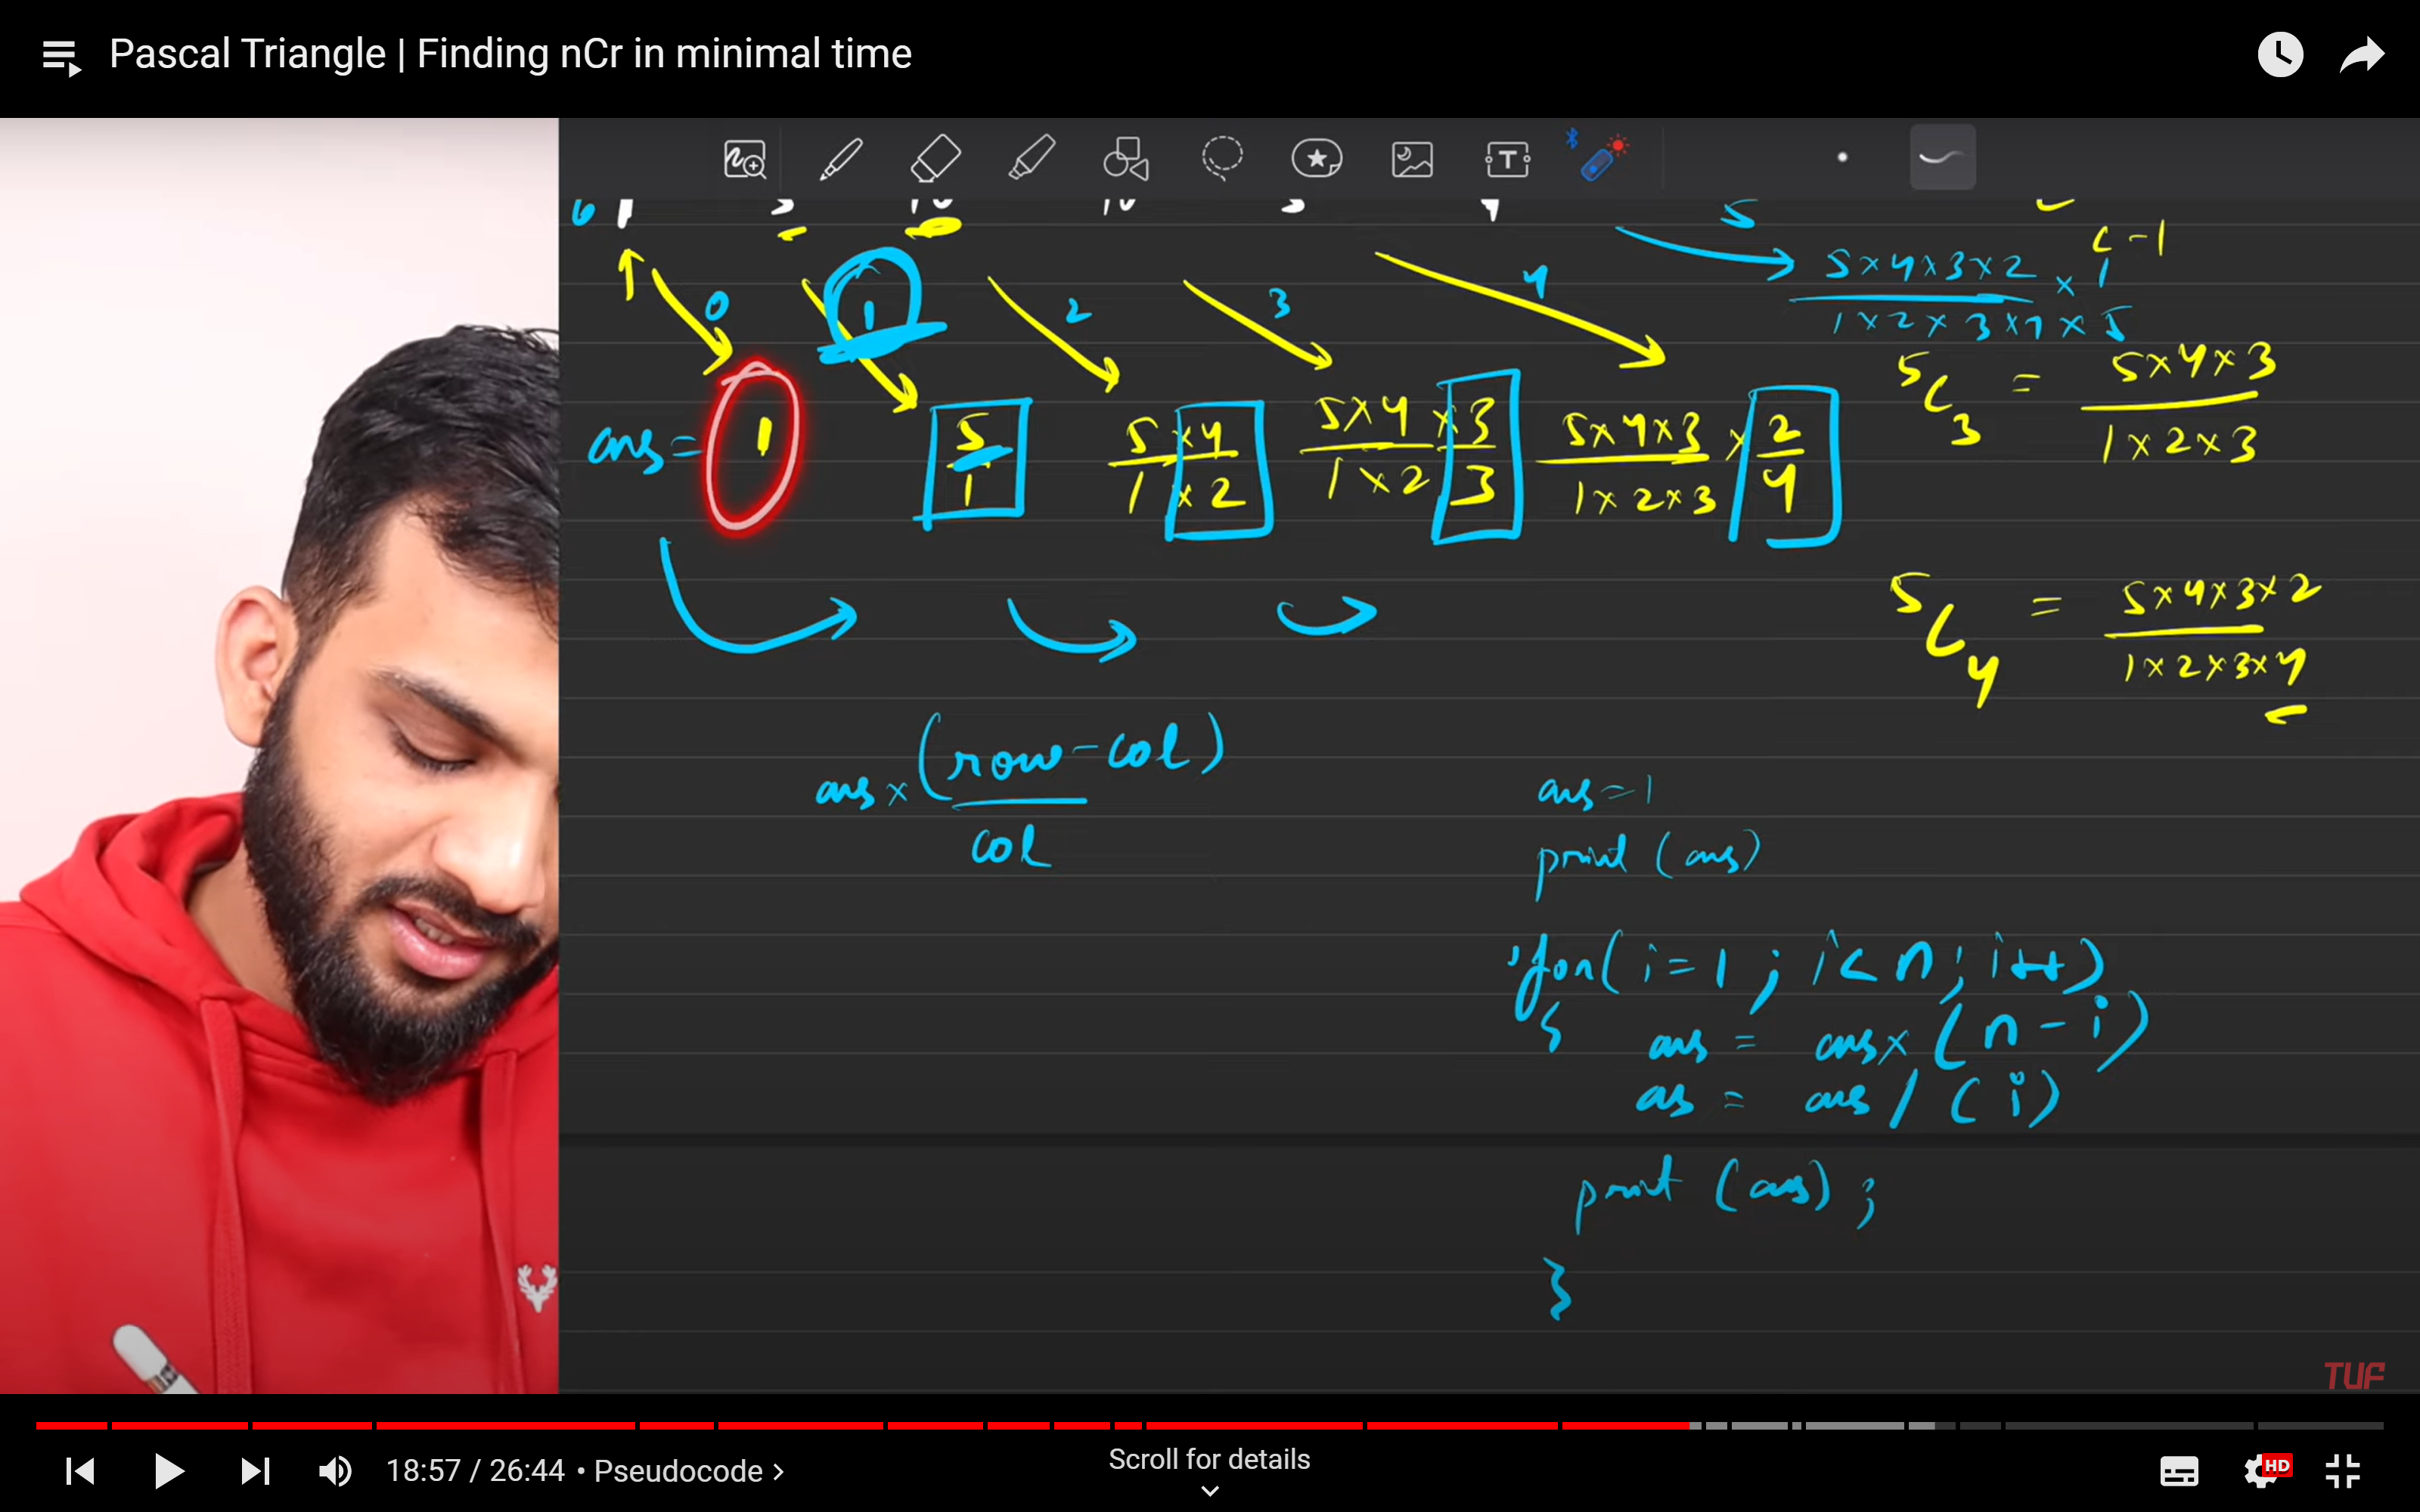 Pascal Triangle | Finding nCr in minimal time
T
6 1
5
c-1
0
1
2
3
4
5×4×3×2 × 1
1×2×3×4×5
ans = 1
5
1
5×4
1×2
5×4×3
1×2×3
5×4×3×2
1×2×3 4
5C3 = 5×4×3
1×2×3
5C4 = 5×4×3×2
1×2×3×4
ans × (row-col)
col
ans=1
print (ans)
for(i=1; i<n; i++)
{ ans = ans×(n-i)
as = ans/(i)
print (ans);
}
TUF
18:57 / 26:44 • Pseudocode
Scroll for details
HD